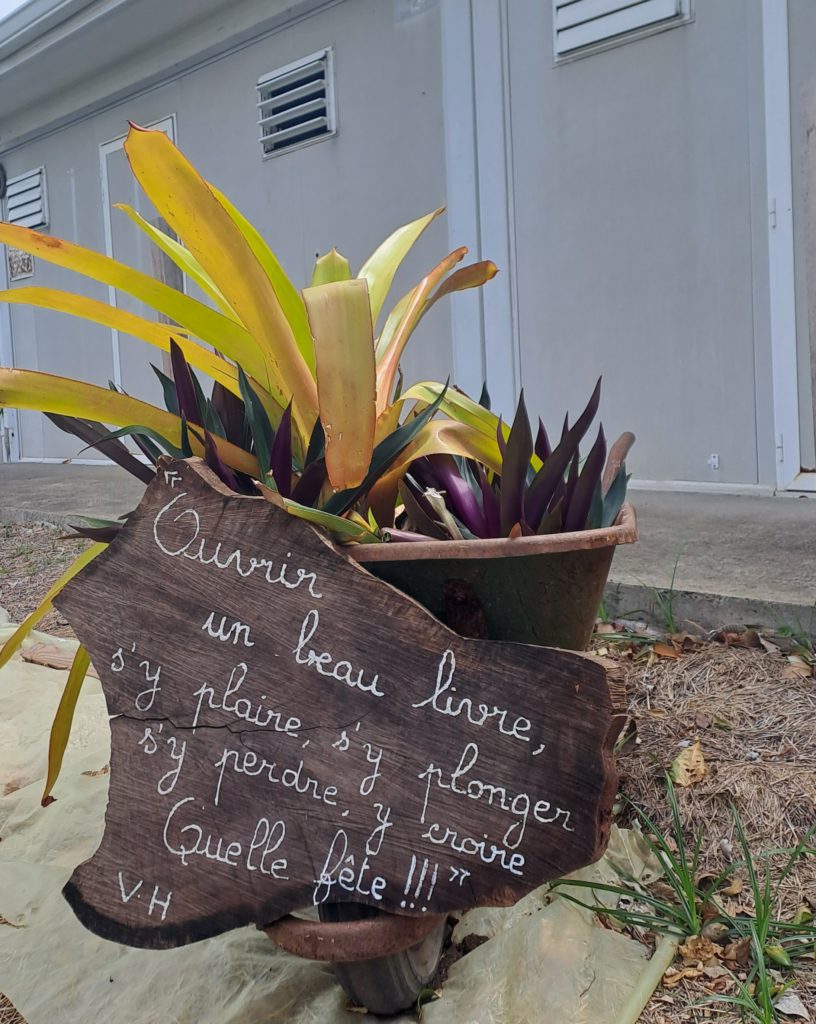 " Ouvrir
un beau livre,
s'y plaire, s'y plonger
s'y perdre, y croire
Quelle fête !!! "
V.H